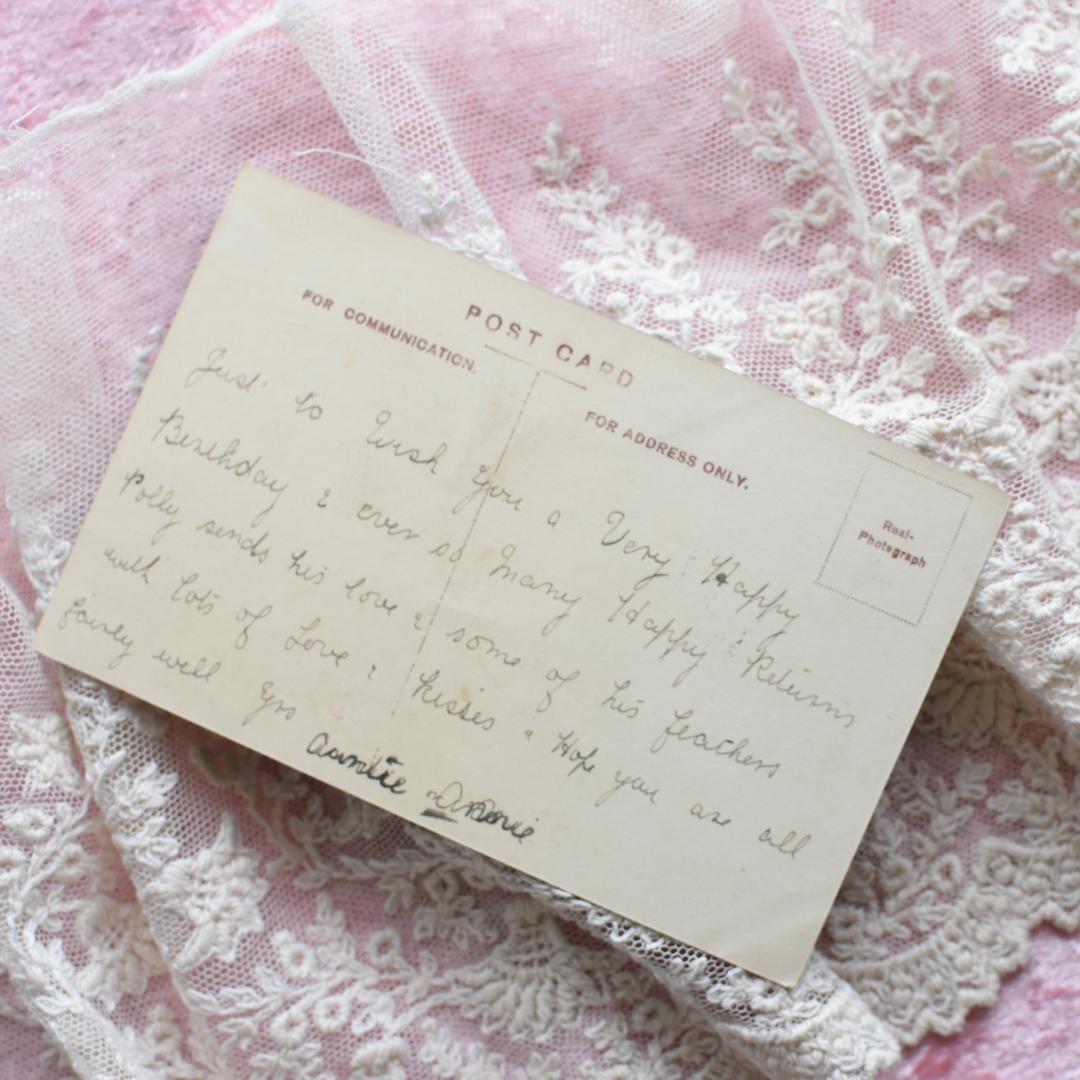 POST CARD
FOR COMMUNICATION.
FOR ADDRESS ONLY.
Real-
Photograph
Just to Wish You a Very Happy
Birthday & ever so Many Happy Returns
Polly sends his love & some of his feathers
with lots of Love & Kisses & Hope you are all
fairly well Yrs
Auntie Annie